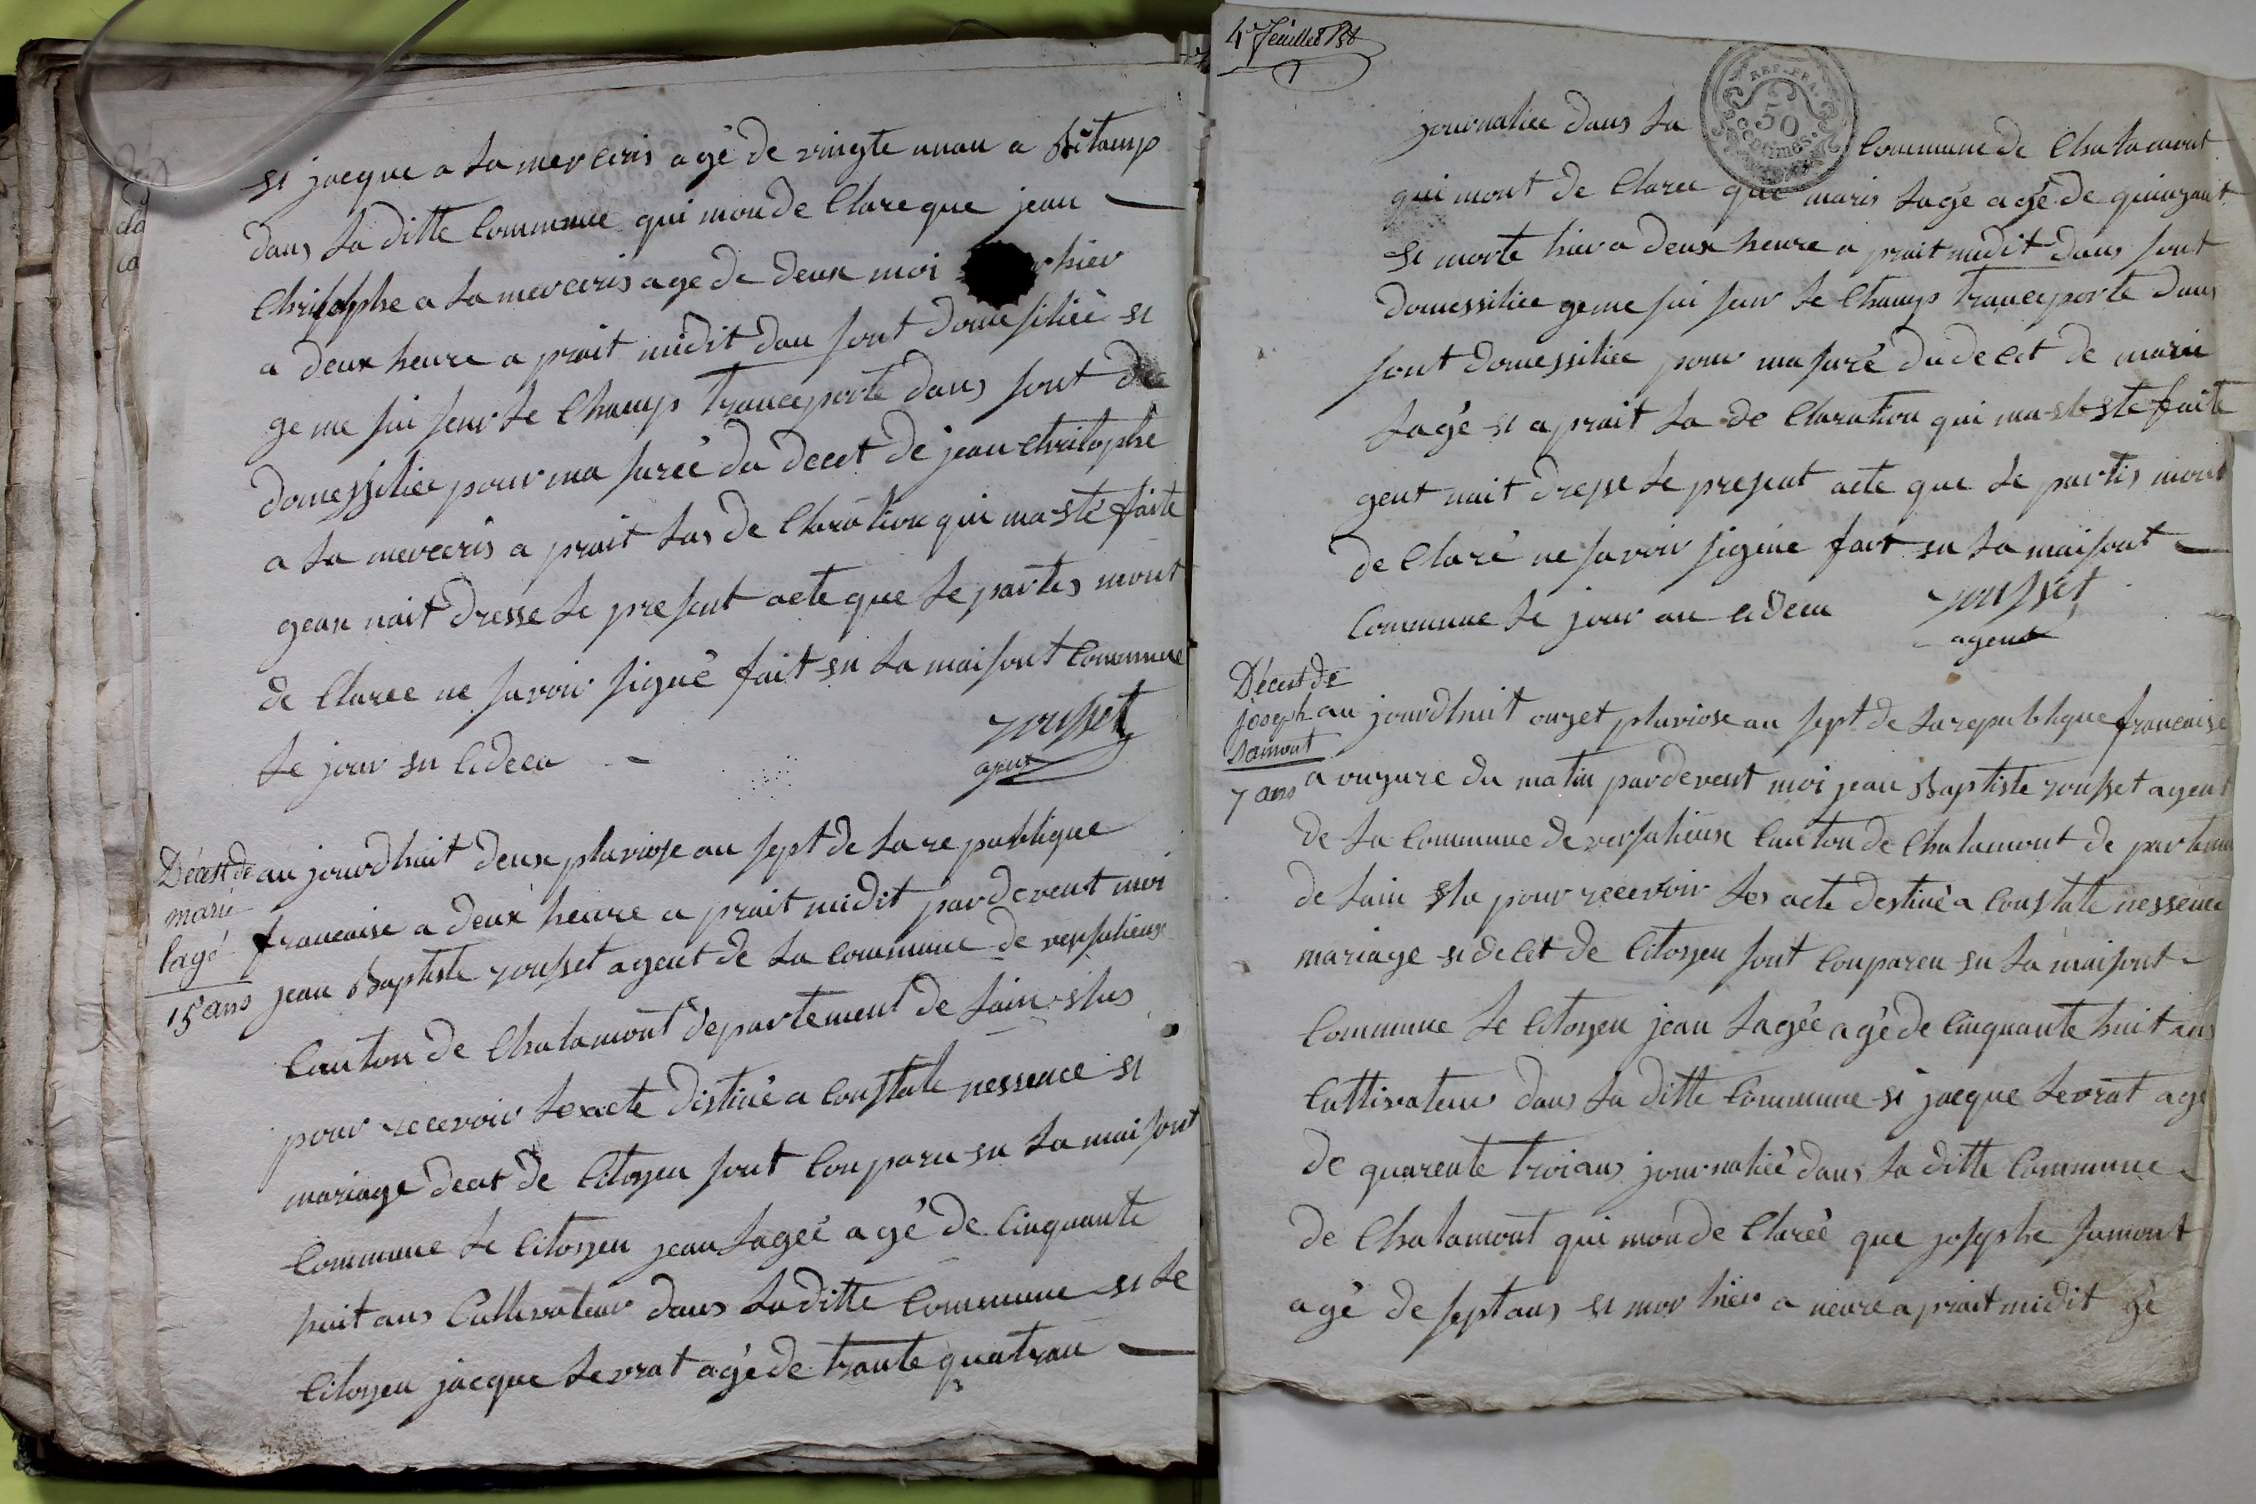 si jacque a la merciris agé de vingte unan a
dans la ditte Commune qui monde Clare que jean
Christophe a la merciris age de deux moi hier
a deux heure a prait midit dan sont domesiliéé si
ge me sui seur le Champ Tranceporte dans sont de
domessiliée pour ma suréé du decet de jean christophe
a la merciris a prait las de Claration qui ma sté faite
gean nait dresse le present acte que le partis mont
de Claree ne savoir signé fait en la maisont Commune
le jour en cideca
rousset
agent
Décest de
marie
lagé
15 ans
au jourdhuit deux pluviose an sept de la republique
francaise a deux heure a prait midit pardevent moi
jean Baptiste rousset agent de la commune de versalieux
Canton de Chalamont departement de lain slus
pour recevoir lexacte distiné a constate nessence si
mariage decet de Citoyen sont Conparu en la maisont
Commune le Citoyen jean lageé agé de Cinquante
huit ans Cultivateur dans la ditte Commune si le
Citoyen jacque levrat agé de trante quatran
4e feuillet
REP. FRA.
50
centimes
journaliee dans la Commune de Chalamont
qui mont de Claree que maris lagé agé de quinzant
si morte hier a deux heure a prait midit dans sont
domessiliee geme sui seur le Champ tranceporte dans
sont domessiliee pour masuré du decet de marie
lagé si aprait la de Claration qui ma sté faite
gent nait dresse le present acte que le partis mont
de Claré ne savoir signé fait en la maisont
Commune le jour an cideca
rousset
agent
Décest de
joseph
Samont
7 ans
au jourdhuit onzet pluviose an sept de la republique francaise
a du matin pardevent moi jean Baptiste rousset agent
de la Commune de versalieux Canton de Chalamont de
de lain slu pour recevoir les acte destiné a Constate nessence
mariage si decet de Citoyen sont Conpareu en la maisont
Commune le Citoyen jean lagée agé de Cinquante huit ans
Cultivateur dans la ditte Commune si jacque levrat agé
de quarente troi ans journaliéé dans la ditte Commune
de Chalamont qui monde Clareé que josephe samont
agé de sept ans si mor hier a neure a prait midit gé